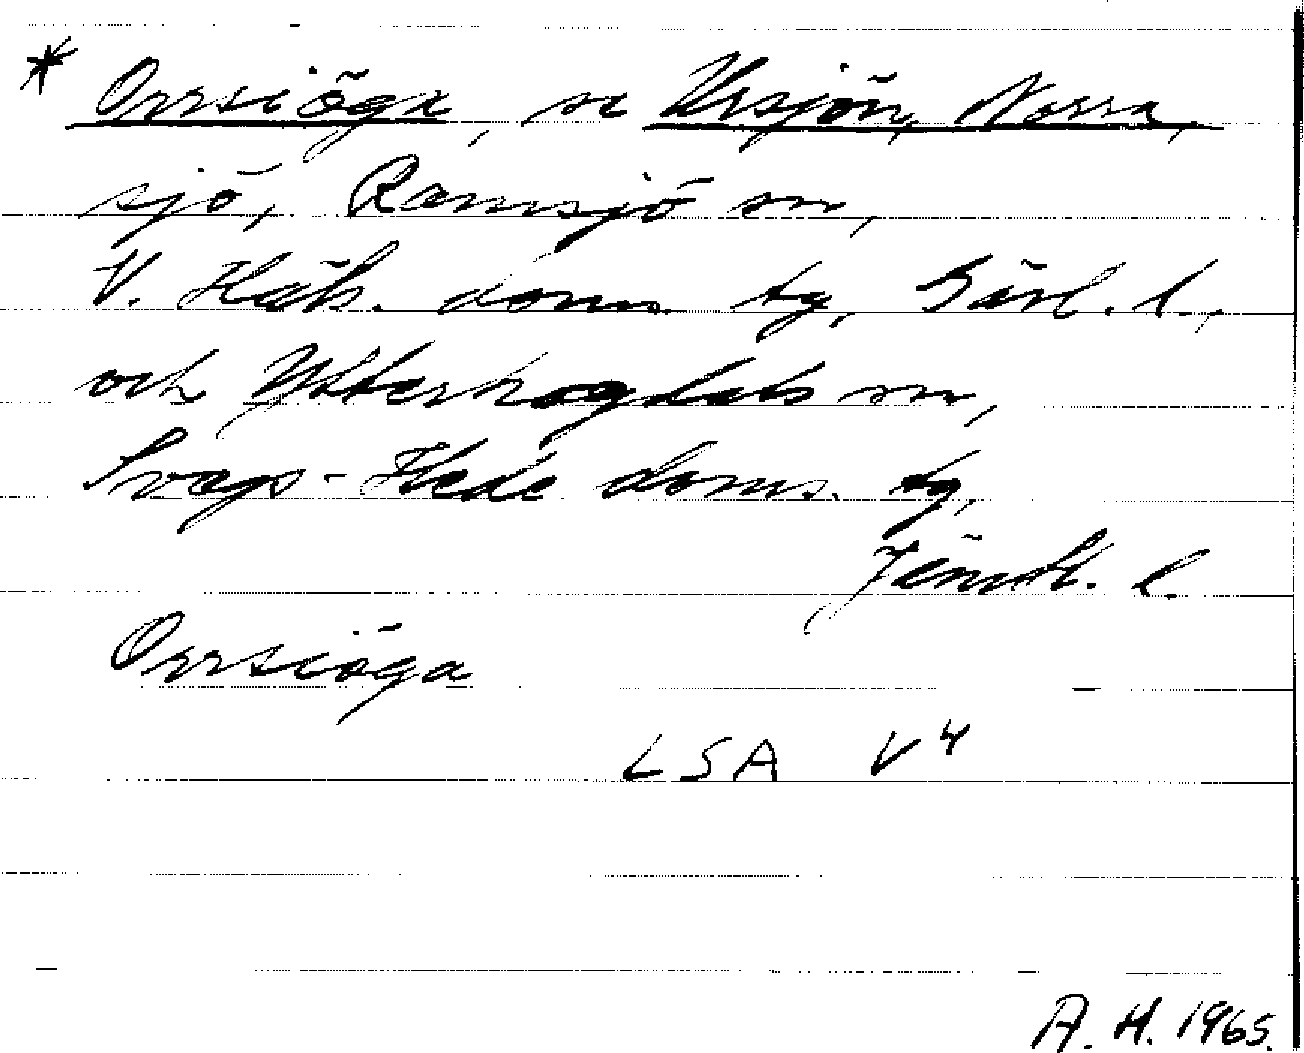 * Orrsiöga, se Ursjön, Norra,
sjö, Ramsjö sn,
V. Häls. doms. tg, Gävl. l.,
och Ytterhogdals sn,
Svegs-Hede doms. tg,
Jämtl. l.
Orrsiöga
LSA V4
A. H. 1965.